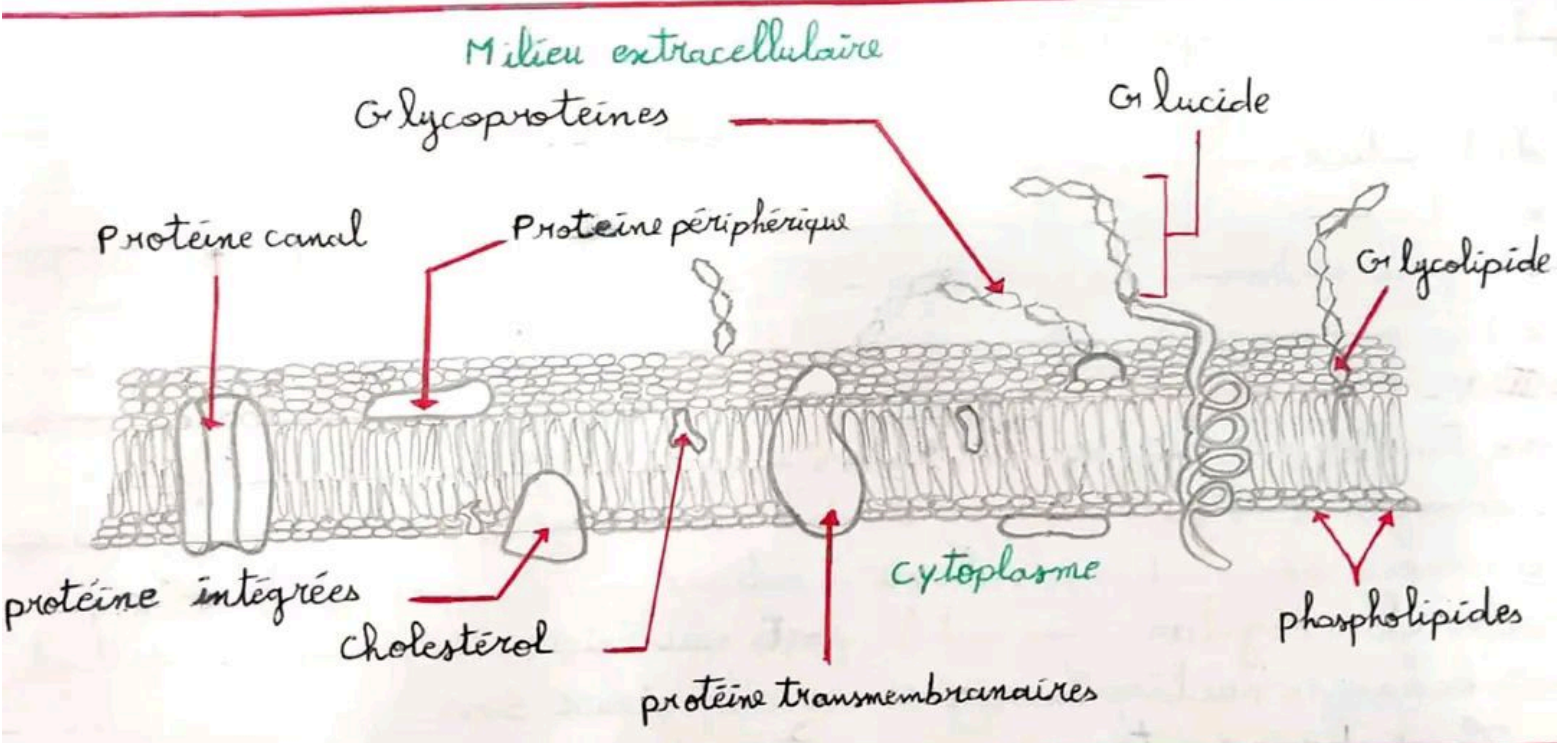 Milieu extracellulaire
Glycoproteines
Glucide
Protéine canal
Proteine périphérique
Glycolipide
cytoplasme
protéine intégrées
cholestérol
phospholipides
protéine transmembranaires